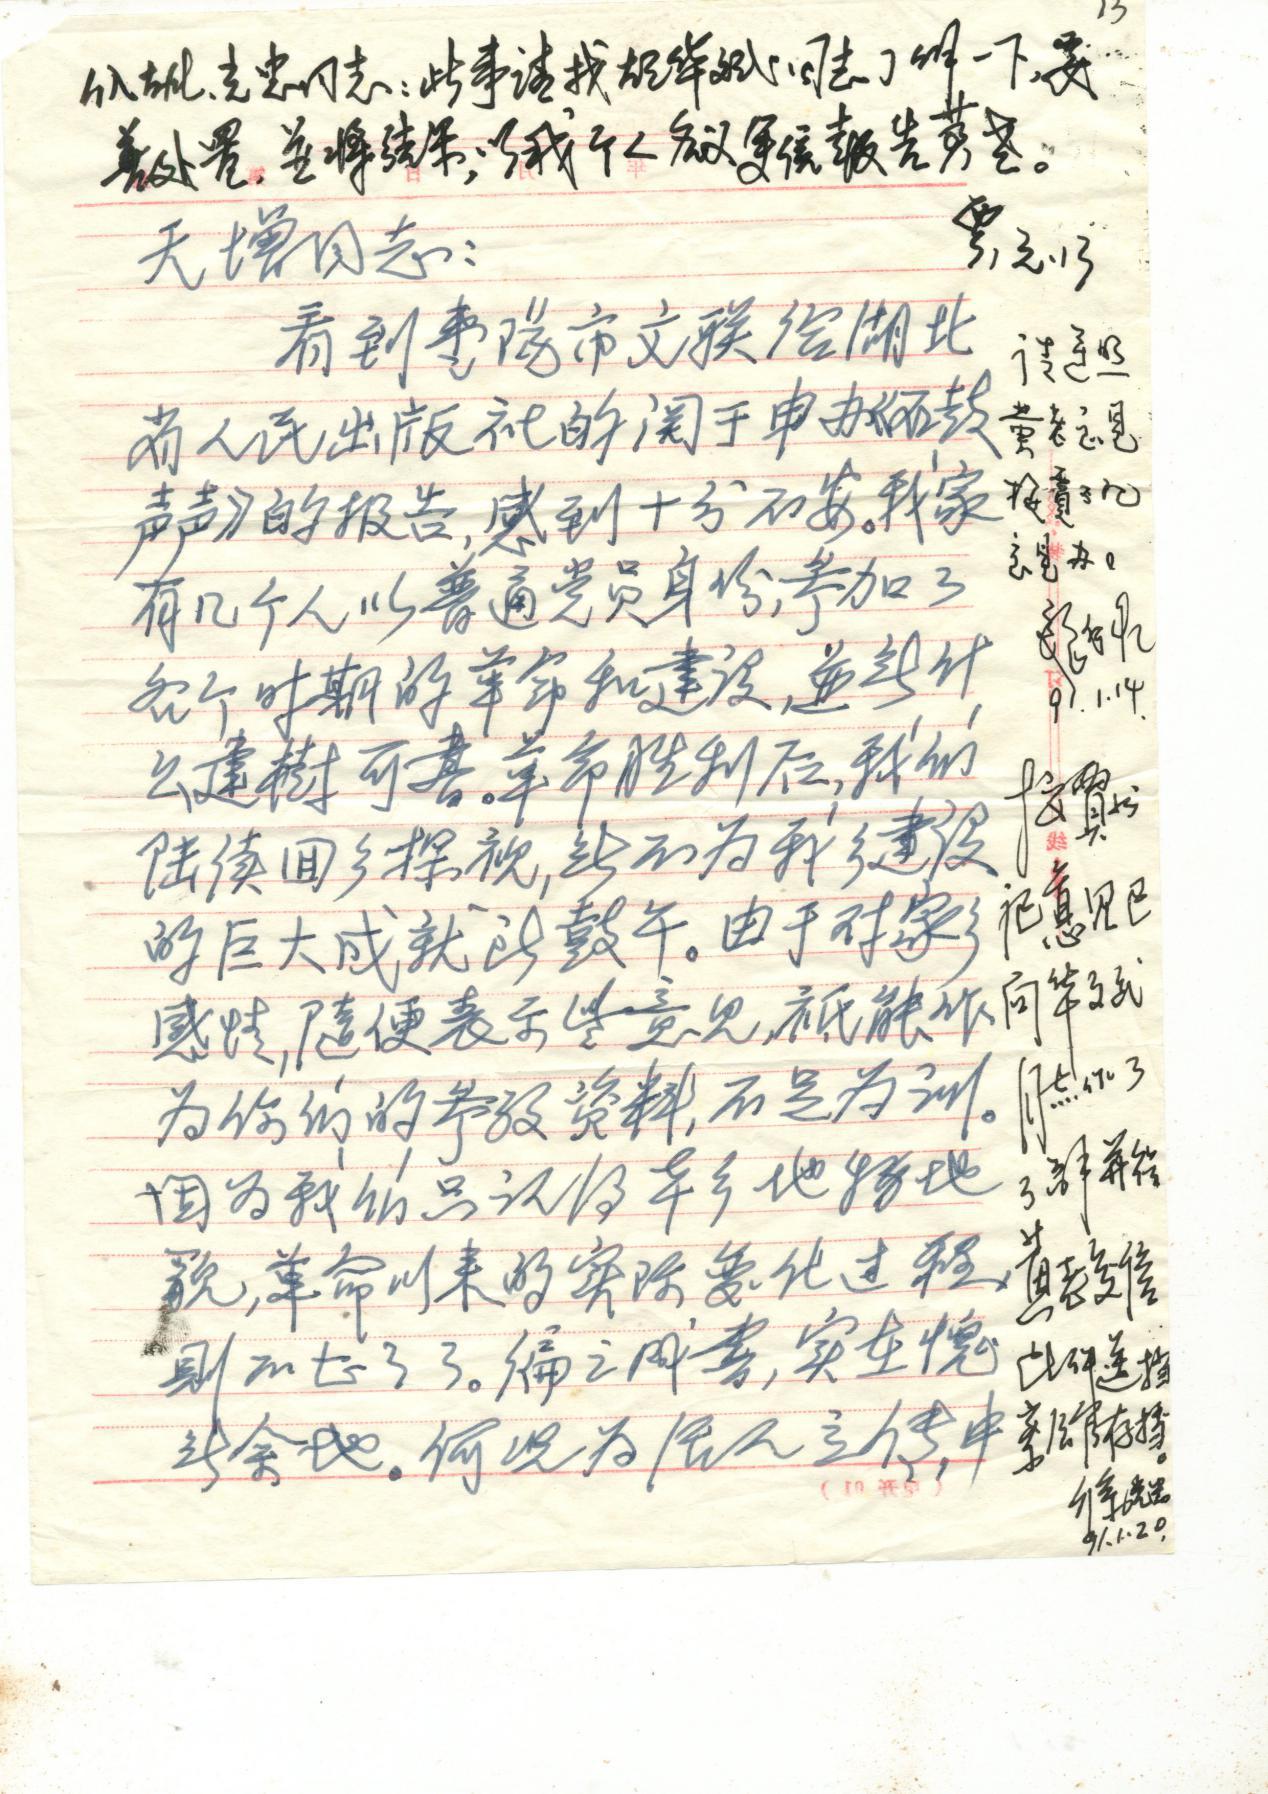 13
此事请找胡华斌同志了解一下,妥
善处置,并将结果,以我个人名义写信报告黄老。
贾,元.13
天增同志:
看到枣阳市文联给湖北
省人民出版社的关于申办《丽鼓
声声》的报告,感到十分不安。我家
有几个人以普通党员身份,参加了
各个时期的革命和建设,并无什
么建树可书。革命胜利后,我们
陆续回乡探视,无不为我乡建设
的巨大成就所鼓午。由于对家乡
感情,随便表示些意见,祇能作
为你们的参考资料,不足为训。
因为我们只认得本乡地物地
貌,革命以来的实际变化过程,
则不甚了了。编之成书,实在愧
无余地。何况为活人立传,中
请遵照
黄老意见
按贾书记
意见办。
91.1.14.
按贾书
记意见已
向华斌
同志作了
了解并给
黄老复信
此件送档
案馆存档。
91.1.20.